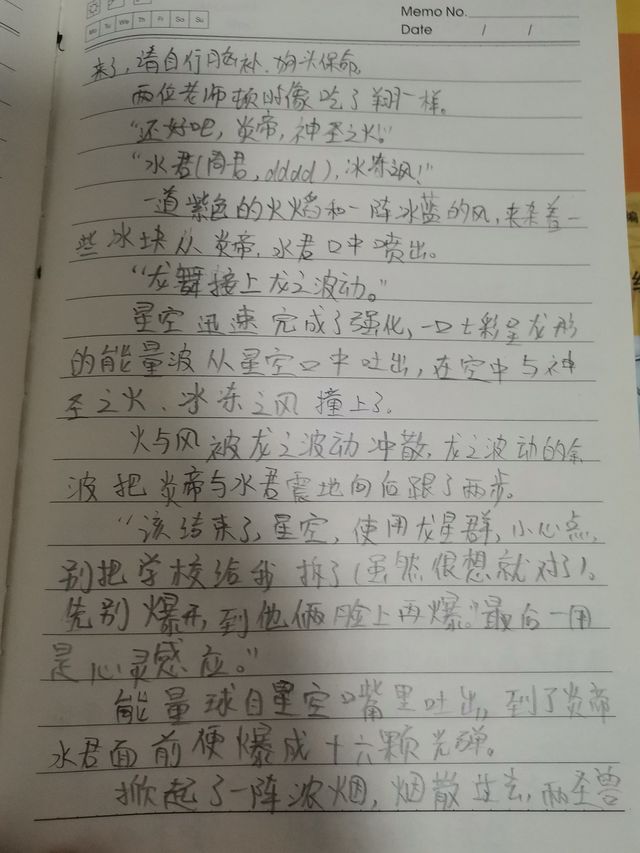 Memo No.
Mo Tu We Th Fr Sa Su
Date / /
来了,请自行脑补,狗头保命。
两位老师顿时像吃了翔一样。
“还好吧,炎帝,神圣之火!”
“水君(同君,dddd),冰冻之风!”
一道紫色的火焰和一阵冰蓝的风,夹杂着一
些冰块从炎帝,水君口中喷出。
“龙舞接上龙之波动。”
星空迅速完成了强化,一口七彩呈龙形
的能量波从星空口中吐出,在空中与神
圣之火、冰冻之风撞上了。
火与风被龙之波动冲散,龙之波动的余
波把炎帝与水君震地向后踉了两步。
“该结束了,星空,使用龙星群,小心点,
别把学校给我拆了(虽然很想就对了)。
先别爆开,到他俩脸上再爆。”最后一用
是心灵感应。”
能量球自星空嘴里吐出,到了炎帝
水君面前便爆成十六颗光弹。
掀起了一阵浓烟,烟散过去,两圣兽